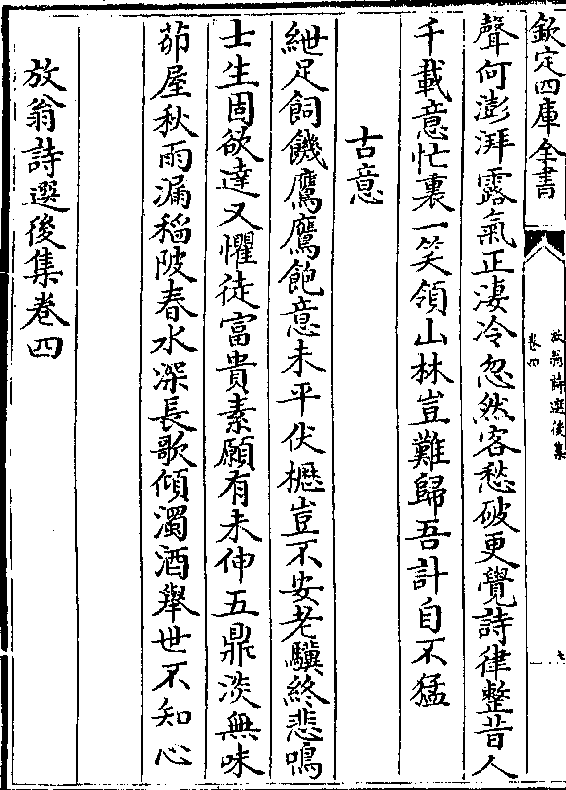 欽定四庫全書
放翁詩選後集
卷四
七
聲何澎湃露氣正凄冷忽然客愁破更覺詩律整昔人
千載意忙裏一笑領山林豈難歸吾計自不猛
古意
紲足飼饑鷹鷹飽意未平伏櫪豈不安老驥終悲鳴
士生固欲達又懼徒富貴素願有未伸五鼎淡無味
茆屋秋雨漏稻陂春水深長歌傾濁酒舉世不知心
放翁詩選後集卷四